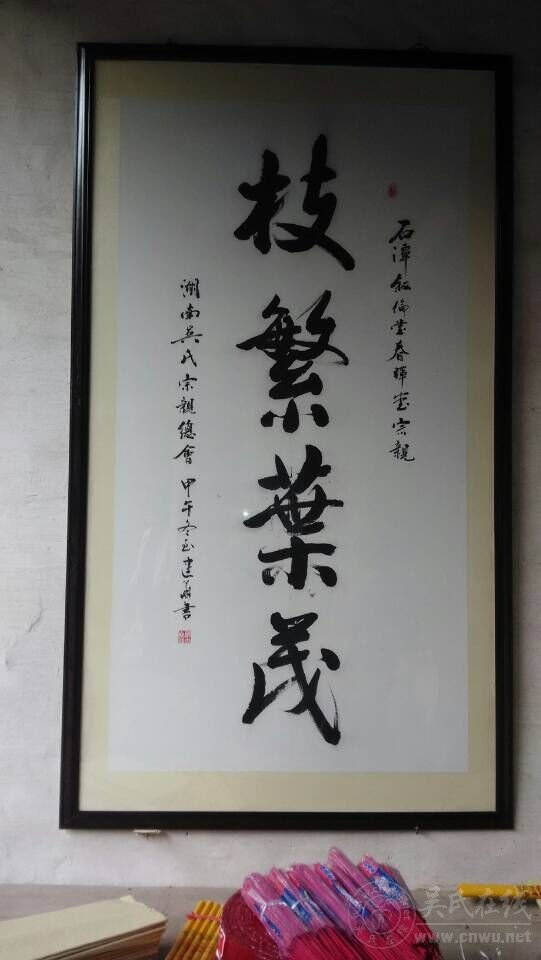 石潭敘倫堂春暉堂宗親
枝繁葉茂
湖南吳氏宗親總會 甲午冬至建華書
吴氏在线
www.cnwu.net